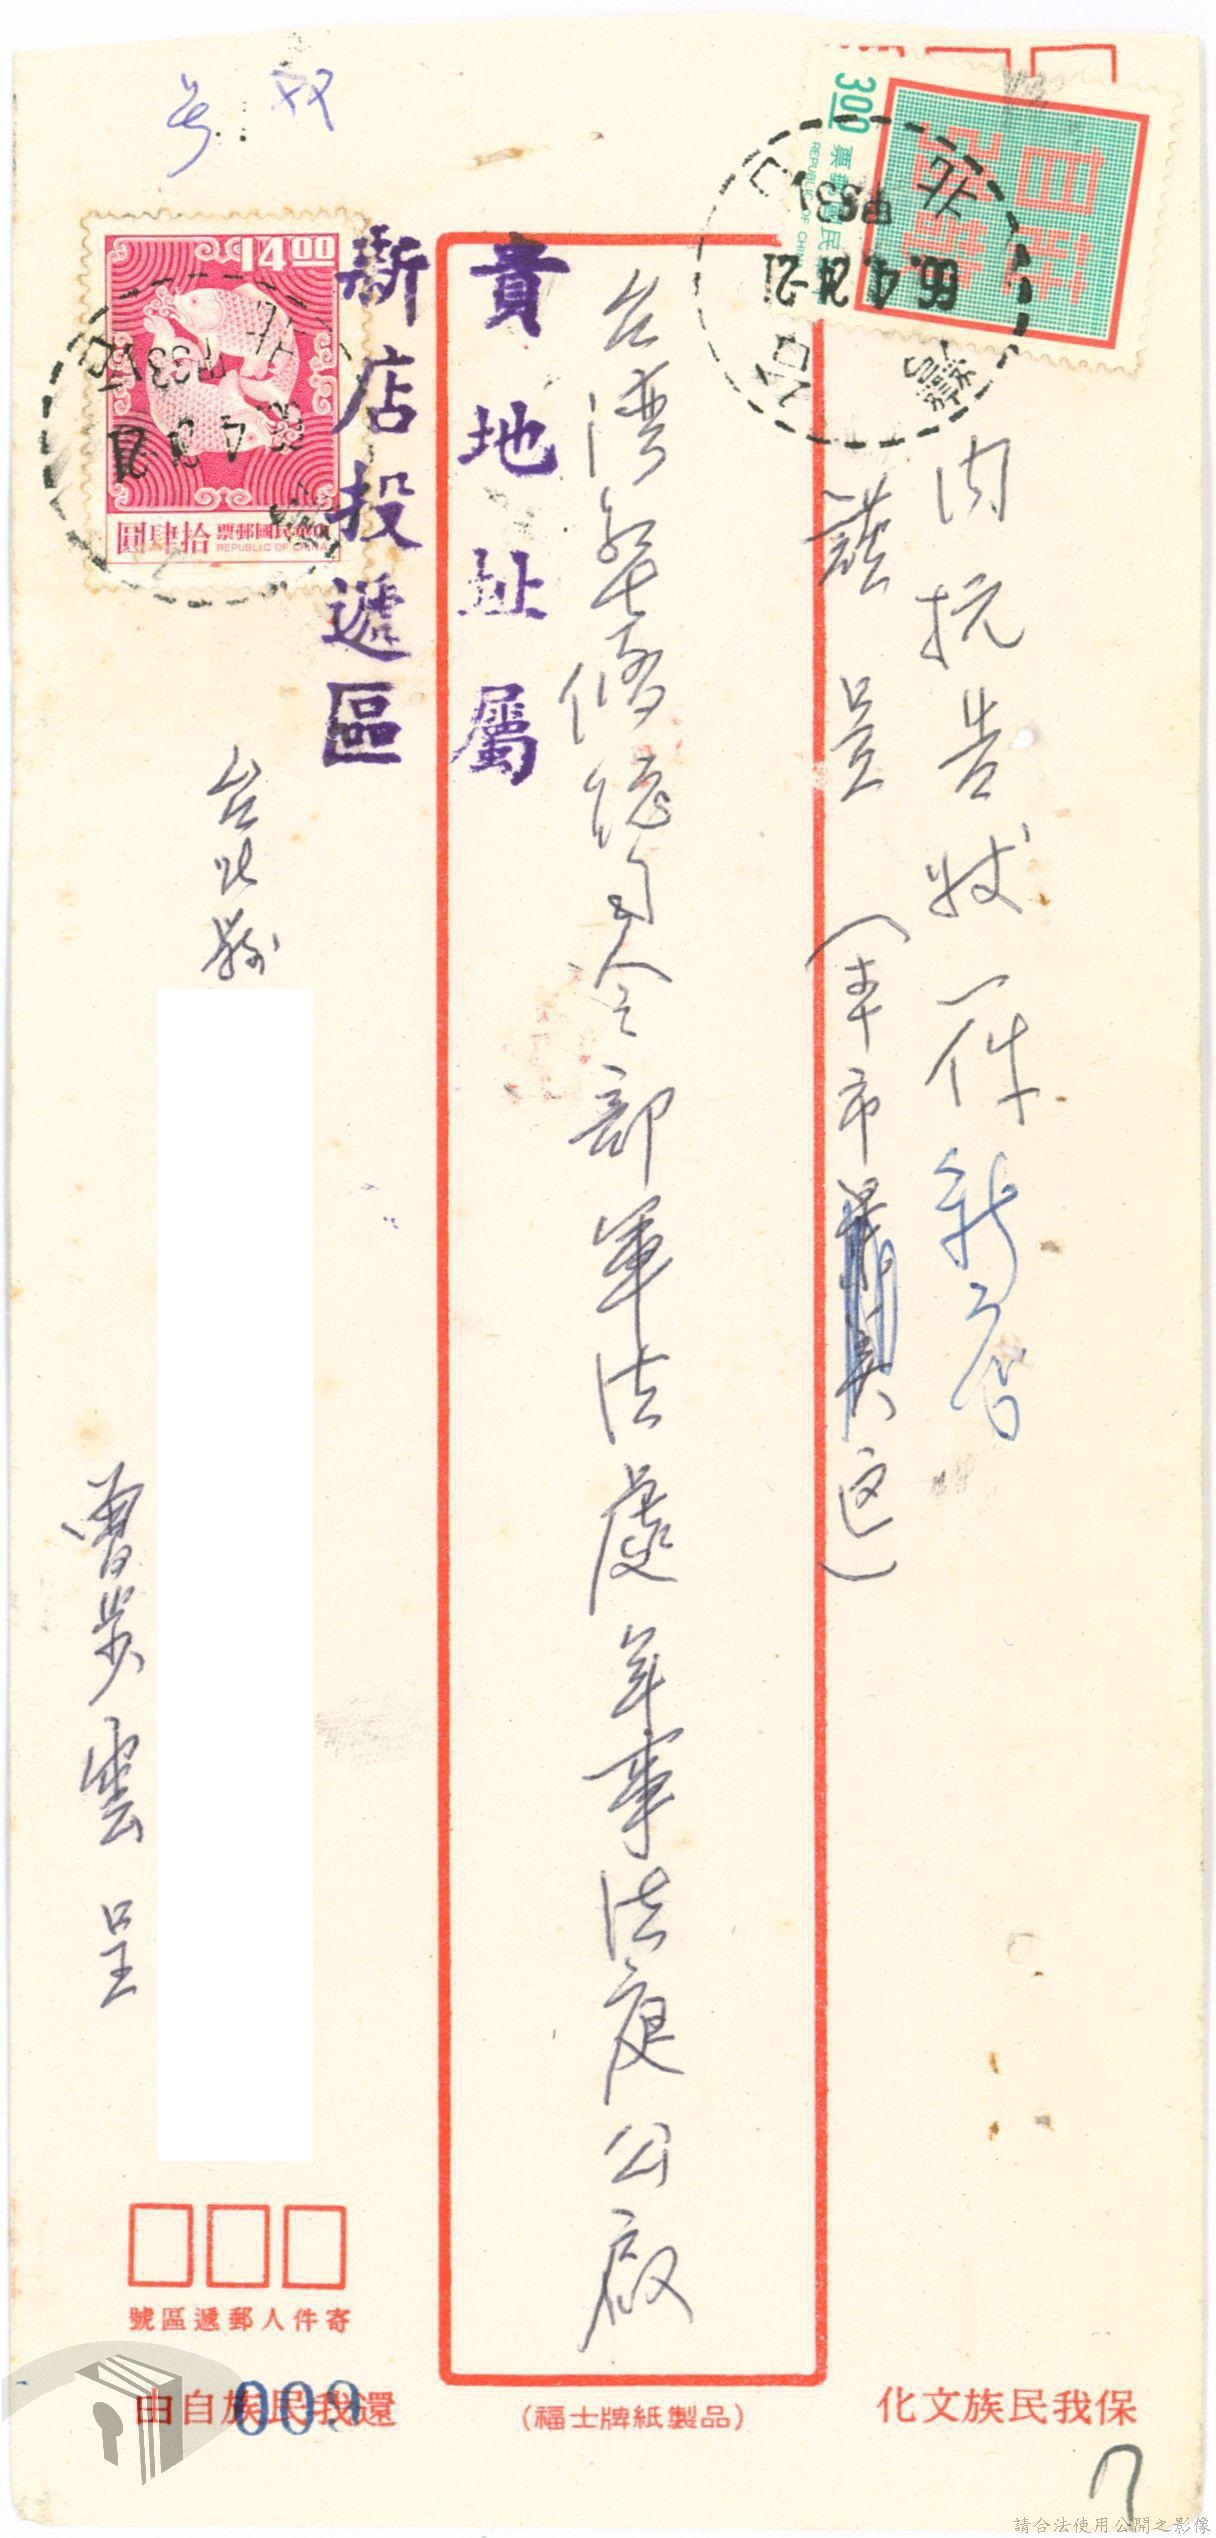 3.00
中華民國郵票
REPUBLIC OF CHINA
自強
莊敬
66.4.24.21
內抗告狀一件
謹呈
(本市景美區)
台灣警備總司令部軍法處軍事法庭公啟
貴地址屬
新店投遞區
14.00
中華民國郵票
REPUBLIC OF CHINA
拾肆圓
台北縣
曾步雲 呈
寄件人郵遞區號
保我民族文化
(福士牌紙製品)
還我民族自由
009
7
請合法使用公開之影像